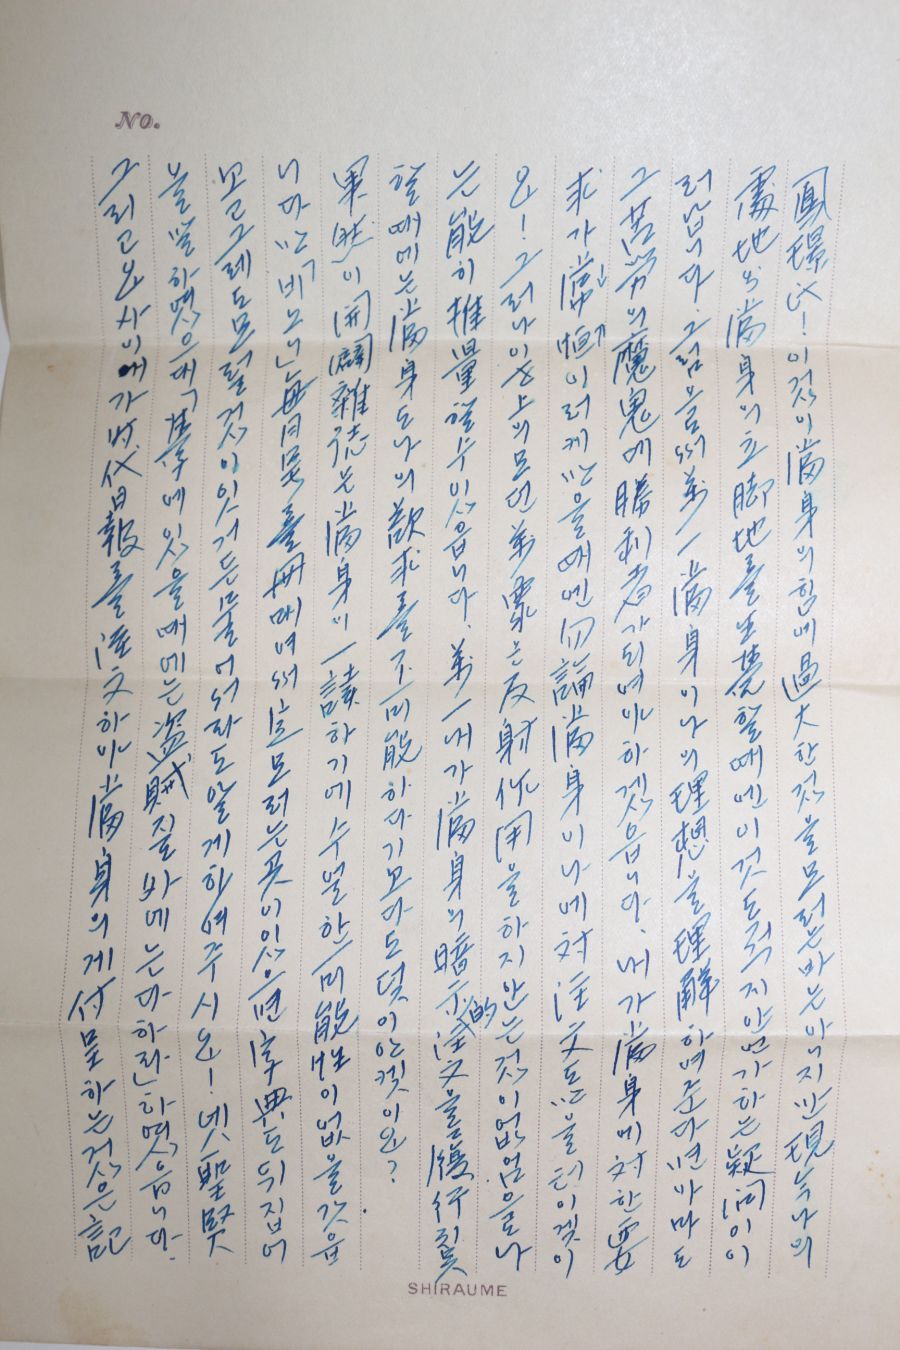 No.
鳳璟氏! 이것이 當身의 힘에 過大한 것을 모러는 바는 아니지만 現今 나의
處地와 當身의 立脚地를 生覺할 때엔 이것도 적지 안는가 하는 疑問이 이
러납니다. 그럼으로써 萬一 當身이 나의 理想을 理解하며 준다면 아마도
그 苦労의 魔鬼에 勝利者가 되여야 하겟습니다. 내가 當身에 対한 要
求가 常恒 이러케 만을 때엔 勿論 當身이 나에 対 注文도 만을 터이겟이
요! 그러나 이 世上의 모던 萬象는 反射作用을 하지 안는 것이 없엄을 나
는 能히 推量할 수 잇습니다. 萬一 내가 當身의 暗示的 注文을 履行치 못
할 때에는 當身도 나의 欲求를 不可能하다기 고다도 덧이 안켓이요?
果然 이 開闢雜誌는 當身이 一讀하기에 수월한 可能性이 없을 것은
니다만 「비고니」 每日 몃 줄 冊 때여서 또 모러는 곳이 잇으면 字典도 뒤집어
보고 그레도 모럴 것이 잇거든 물어서라도 알게 하여 주시요! 녯 聖賢
을 말하엿으대 「夢에 잇을 때에는 盜賊질 밖에는 다 하라」 하엿습니다.
그리고 요사이에가 時代日報를 注文하야 當身의게 付呈하는 것은 記
SHIRAUME